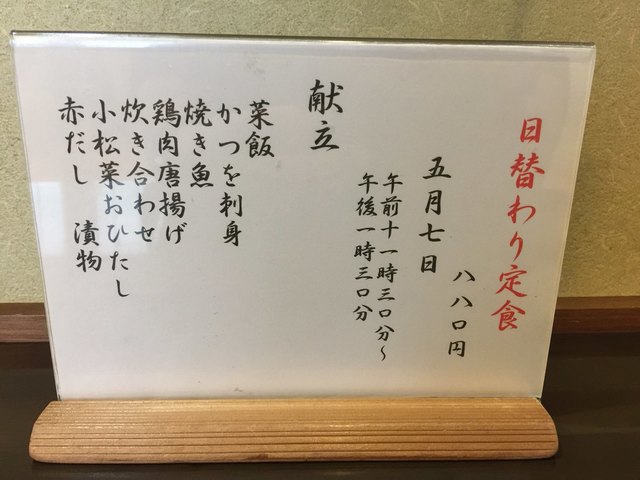 日替わり定食
八八〇円
五月七日
午前十一時三〇分〜
午後一時三〇分
献立
菜飯
かつを刺身
焼き魚
鶏肉唐揚げ
炊き合わせ
小松菜おひたし
赤だし 漬物